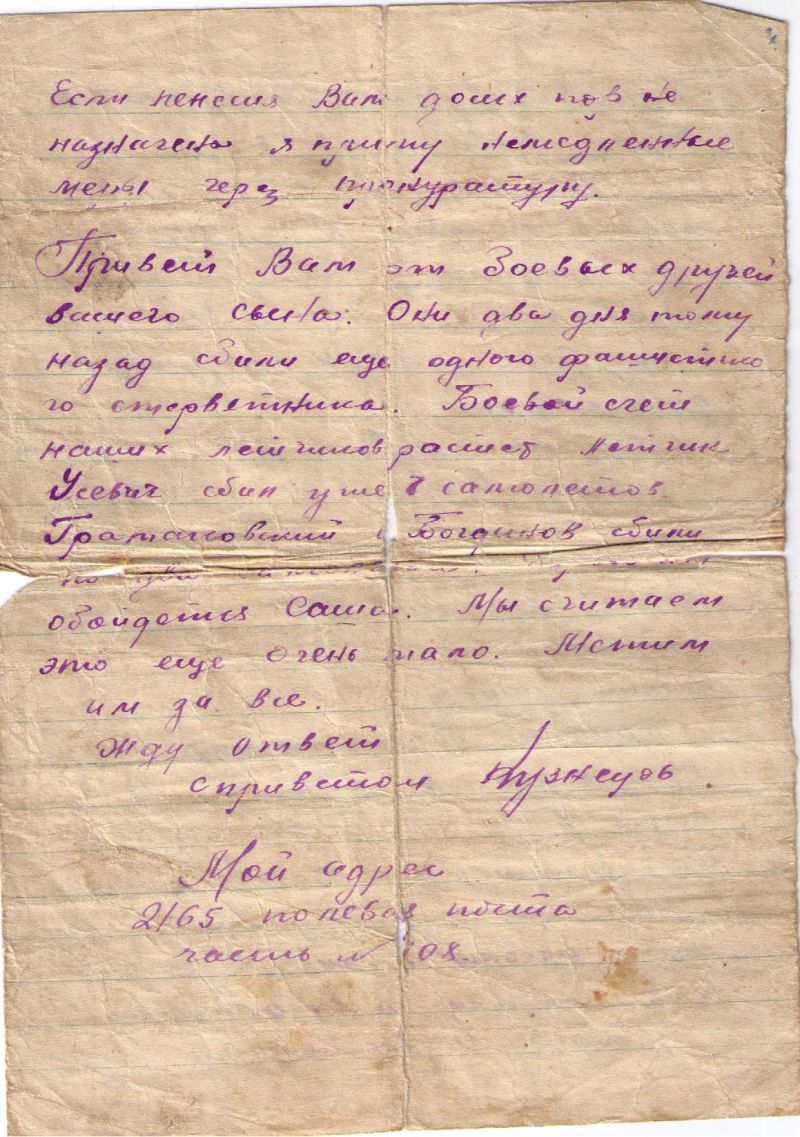 Если пенсия Вам
назначена я приму немедленные
меры через прокуратуру.
Привет Вам от боевых друзей
вашего сына. Они два дня тому
назад сбили еще одного фашистско
го стервятника. Боевой счет
наших летчиков растет летчик
Усевич сбил уже самолетов.
и Богданов сбили
по два
обойдется Саша. Мы считаем
это еще очень мало. Мстим
им за все.
Жду ответ
с приветом Кузнецов
Мой адрес
2165 полевая почта
часть №